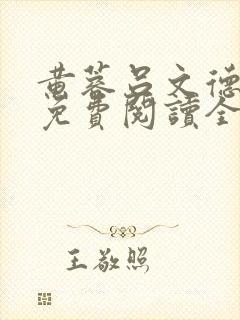 黄蓉吕文德
免費閱讀全
王敬照